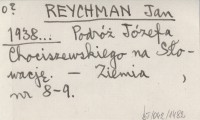 o?
REYCHMAN Jan
1938... Podróż Józefa
Chociszewskiego na Sło-
wację. — Ziemia,
nr 8-9.